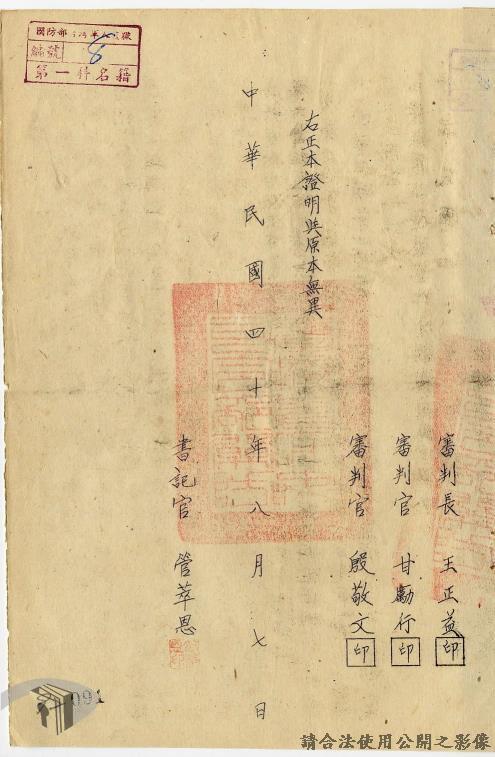 審判長 王正益 印
審判官 甘勵行 印
審判官 殷敬文 印
右正本證明與原本無異
中華民國四十年八月七日
書記官 管萃恩
編號 8
第一科名籍
091
請合法使用公開之影像